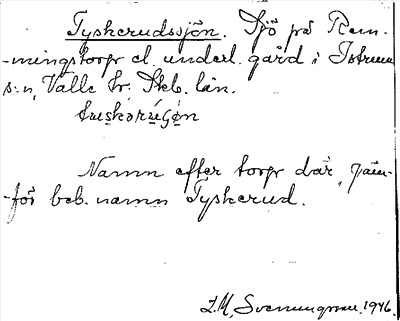 Tyskerudssjön. Sjö på Rem-
-mingstorp el. underl. gård i Istrum
s:n, Valle hr. Skb. län.
Namn efter torp där, jäm-
-för beb. namn Tyskerud.
I. M. Svenungsson, 1946.